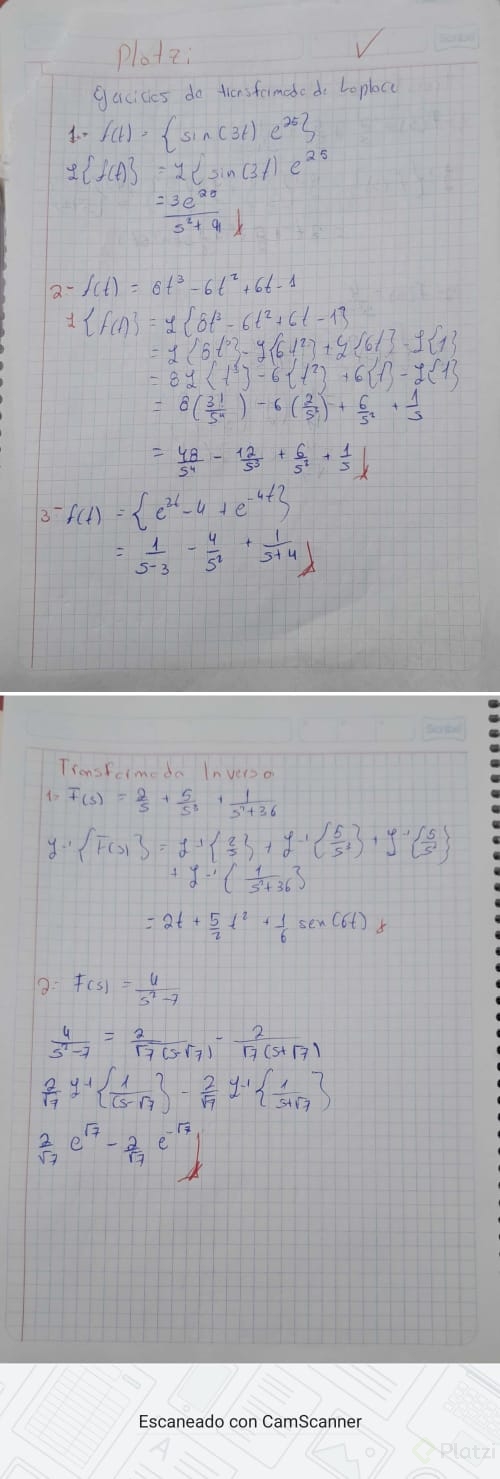 Platzi
Ejercicios de transformada de Laplace
1.- f(t) = {sin(3t) e^25}
L{f(t)} = L{sin(3t) e^25
= 3e^25 / s²+9
2- f(t) = 8t³ - 6t² + 6t - 1
L{f(t)} = L{8t³ - 6t² + 6t - 1}
= L{8t³} - L{6t²} + L{6t} - L{1}
= 8L{t³} - 6{t²} + 6{t} - L{1}
= 8(3!/s⁴) - 6(2/s³) + 6/s² + 1/s
= 48/s⁴ - 12/s³ + 6/s² + 1/s
3- f(t) = {e^3t - 4 + e^-4t}
= 1/s-3 - 4/s² + 1/s+4
Scribe
Transformada Inversa
1.- F(s) = 2/s + 5/s³ + 1/s²+36
L⁻¹{F(s)} = L⁻¹{2/s} + L⁻¹{5/s³} + L⁻¹{5/s³}
+ L⁻¹{1/s²+36}
= 2t + 5/2 t² + 1/6 sen(6t)
2.- F(s) = 4/s²-7
4/s²-7 = 2/√7(s-√7) - 2/√7(s+√7)
2/√7 L⁻¹{1/(s-√7} - 2/√7 L⁻¹{1/s+√7}
2/√7 e^√7 - 2/√7 e^-√7
Escaneado con CamScanner
Platzi